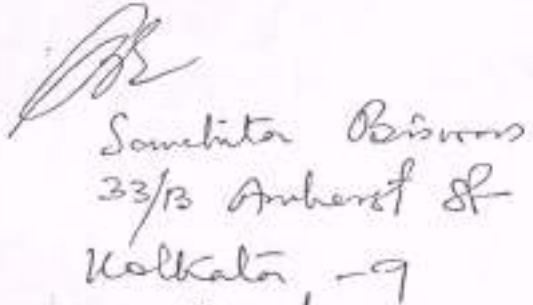 Sanchita Biswas
33/B Amherst St
Kolkata, -9